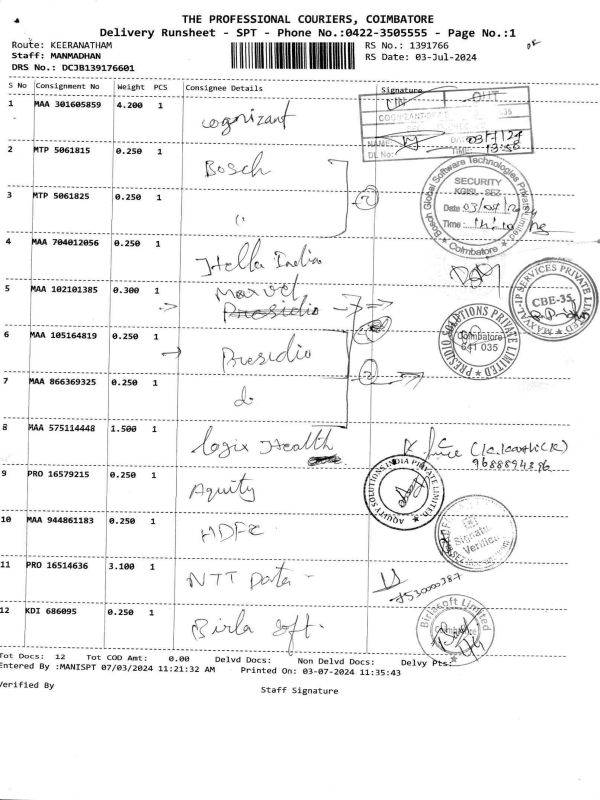 THE PROFESSIONAL COURIERS, COIMBATORE
Delivery Runsheet - SPT - Phone No.:0422-3505555 - Page No.:1
Route: KEERANATHAM
RS No.: 1391766
Staff: MANMADHAN
RS Date: 03-Jul-2024
DRS No.: DCJB139176601
S No Consignment No Weight PCS Consignee Details Signature
1 MAA 301605859 4.200 1 cognizant
IN OUT
NAME:
DL No:
TIME:
03/7/24
2 MTP 5061815 0.250 1 Bosch
3 MTP 5061825 0.250 1 "
2
Bosch Global Software Technologies Private Limited
SECURITY
KGISL - SEZ
Date
Time :
Coimbatore
4 MAA 704012056 0.250 1 Hella India
5 MAA 102101385 0.300 1 Marvel
Presidio
CBE-35
6 MAA 105164819 0.250 1 Presidio
PRESIDIO SOLUTIONS PRIVATE LIMITED
Coimbatore
641 035
7 MAA 866369325 0.250 1 do
2
8 MAA 575114448 1.500 1 Logix Health
9688894396
9 PRO 16579215 0.250 1 Aquity
AQUITY SOLUTIONS INDIA PRIVATE LIMITED
10 MAA 944861183 0.250 1 HDFC
Signature
Verified
11 PRO 16514636 3.100 1 NTT Data -
12 KDI 686095 0.250 1 Birla Soft.
Birlasoft Limited
Coimbatore
Tot Docs: 12 Tot COD Amt: 0.00 Delvd Docs: Non Delvd Docs: Delvy Pts:
Entered By :MANISPT 07/03/2024 11:21:32 AM Printed On: 03-07-2024 11:35:43
Verified By
Staff Signature